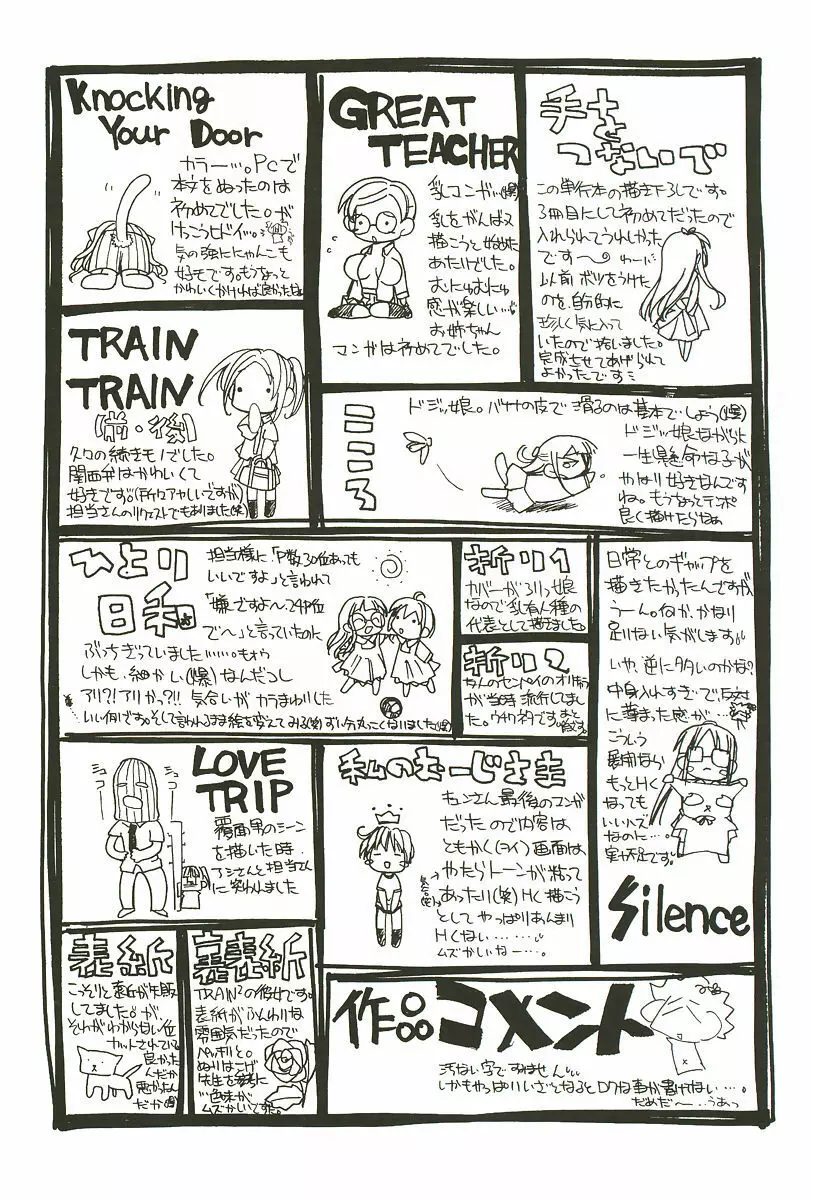 Knocking
Your Door
カラー…。PCで
本文をぬったのは
初めてでした。が
けっこうヒドイ…。
気の強いにゃんこも
好きです。もうちょっと
かわいくかければ良かったな
GREAT
TEACHER
乳コンガ…(爆)
乳をがんばって
描こうと始めた
あたりでした。
むにゅむにゅ
感が楽しい…
お姉ちゃん
マンガは初めてでした。
手を
つないで
この単行本の描き下ろしです。
3冊目にして初めてだったので
入れられてうれしかった
です〜。わーい
以前ボツをうけた
のを、自分的に
珍しく気に入って
いたので拾いました。
完成させてあげられて
よかったです
TRAIN
TRAIN
(前・後)
久々の続きモノでした。
関西弁はかわいくて
好きです。(チィクアヤしいですが)
担当さんのリクエストでもありました(笑)
こころ
ドジッ娘。バナナの皮で滑るのは基本でしょう(爆)
ドジッ娘ながらに
一生懸命な子が
かなり好きなんです
ね。もうちょっとテンポ
良く描けたらなぁ
ひとり
日和
担当様に「P数30位あっても
いいですよ」と言われて
「嫌ですよ〜24P位
で〜」と言っていたのに
ぶっちぎっていました……。もぉぅ
しかも、細かい(爆)なんだコレ
アリ?!アリかっ?!! 気合いがカラまわりした
いい例です。そして言われるまま絵を変えてみる(笑)ずい分丸こくなりました(爆)
折り1
カバーがろりっ娘
なので乳有人種の
代表として描きました。
折り2
が当時流行してまし
た。ウサクネクです。
日常とのギャップを
描きたかったんですが
うーん。何か、かなり
足りない気がします。
いや、逆に多いのかな?
中身入れすぎで反対
に薄まった感が…
こういう
もっとHく
なっても
いいハズ
なのに…。
実力不足です。
Silence
LOVE
TRIP
ミコ
ミコ
覆面男のシーン
を描いた時、
アシさんと担当さん
に笑われました
私のおーじさま
キュンさん最後のマンガ
だったので内容は
ともかく(コラ)画面は
やたらトーンが貼って
あったり(笑)Hく描こう
としてやっぱりあんまり
Hくない……
ムズかしいねー…。
表紙
こっそりと表紙が年賀
してました。が、
それがわからない位
カットされていて
良かった
んだか
悪かったん
だか(爆)
裏表紙
TRAIN²の彼女です。
表紙がふんわりな
雰囲気だったので
パッキリと。
ぬりはこげ
先生を参考に
色味が
ムズかしいです。
作品コメント
汚ない字ですみません
しかもやっぱりいざとなるとロクな事が書けない…。
だめだ〜…うあっ